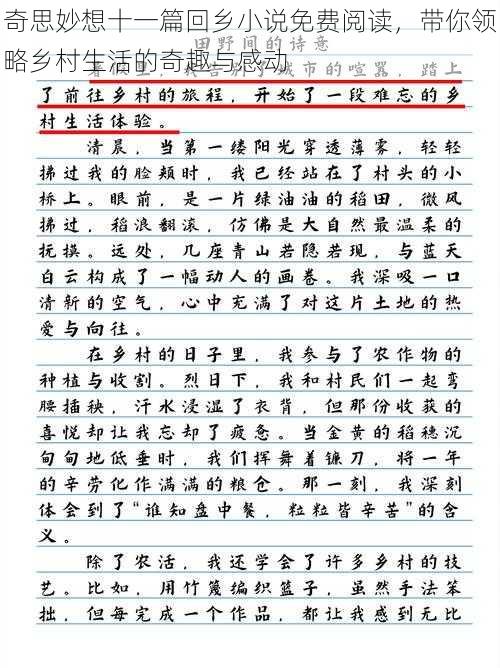 奇思妙想十一篇回乡小说免费阅读，带你领
略乡村生活的奇趣与感动
田野间的诗意
了前往乡村的旅程，开始了一段难忘的乡
村生活体验。
清晨，当第一缕阳光穿透薄雾，轻轻
拂过我的脸颊时，我已经站在了村头的小
桥上。眼前，是一片绿油油的稻田，微风
拂过，稻浪翻滚，仿佛是大自然最温柔的
抚摸。远处，几座青山若隐若现，与蓝天
白云构成了一幅动人的画卷。我深吸一口
清新的空气，心中充满了对这片土地的热
爱与向往。
在乡村的日子里，我参与了农作物的
种植与收割。烈日下，我和村民们一起弯
腰插秧，汗水浸湿了衣背，但那份收获的
喜悦却让我忘却了疲惫。当金黄的稻穗沉
甸甸地低垂时，我们挥舞着镰刀，将一年
的辛劳化作满满的粮仓。那一刻，我深刻
体会到了“谁知盘中餐，粒粒皆辛苦”的含
义。
除了农活，我还学会了许多乡村的技
艺。比如，用竹篾编织篮子，虽然手法笨
拙，但每完成一个作品，都让我感到无比